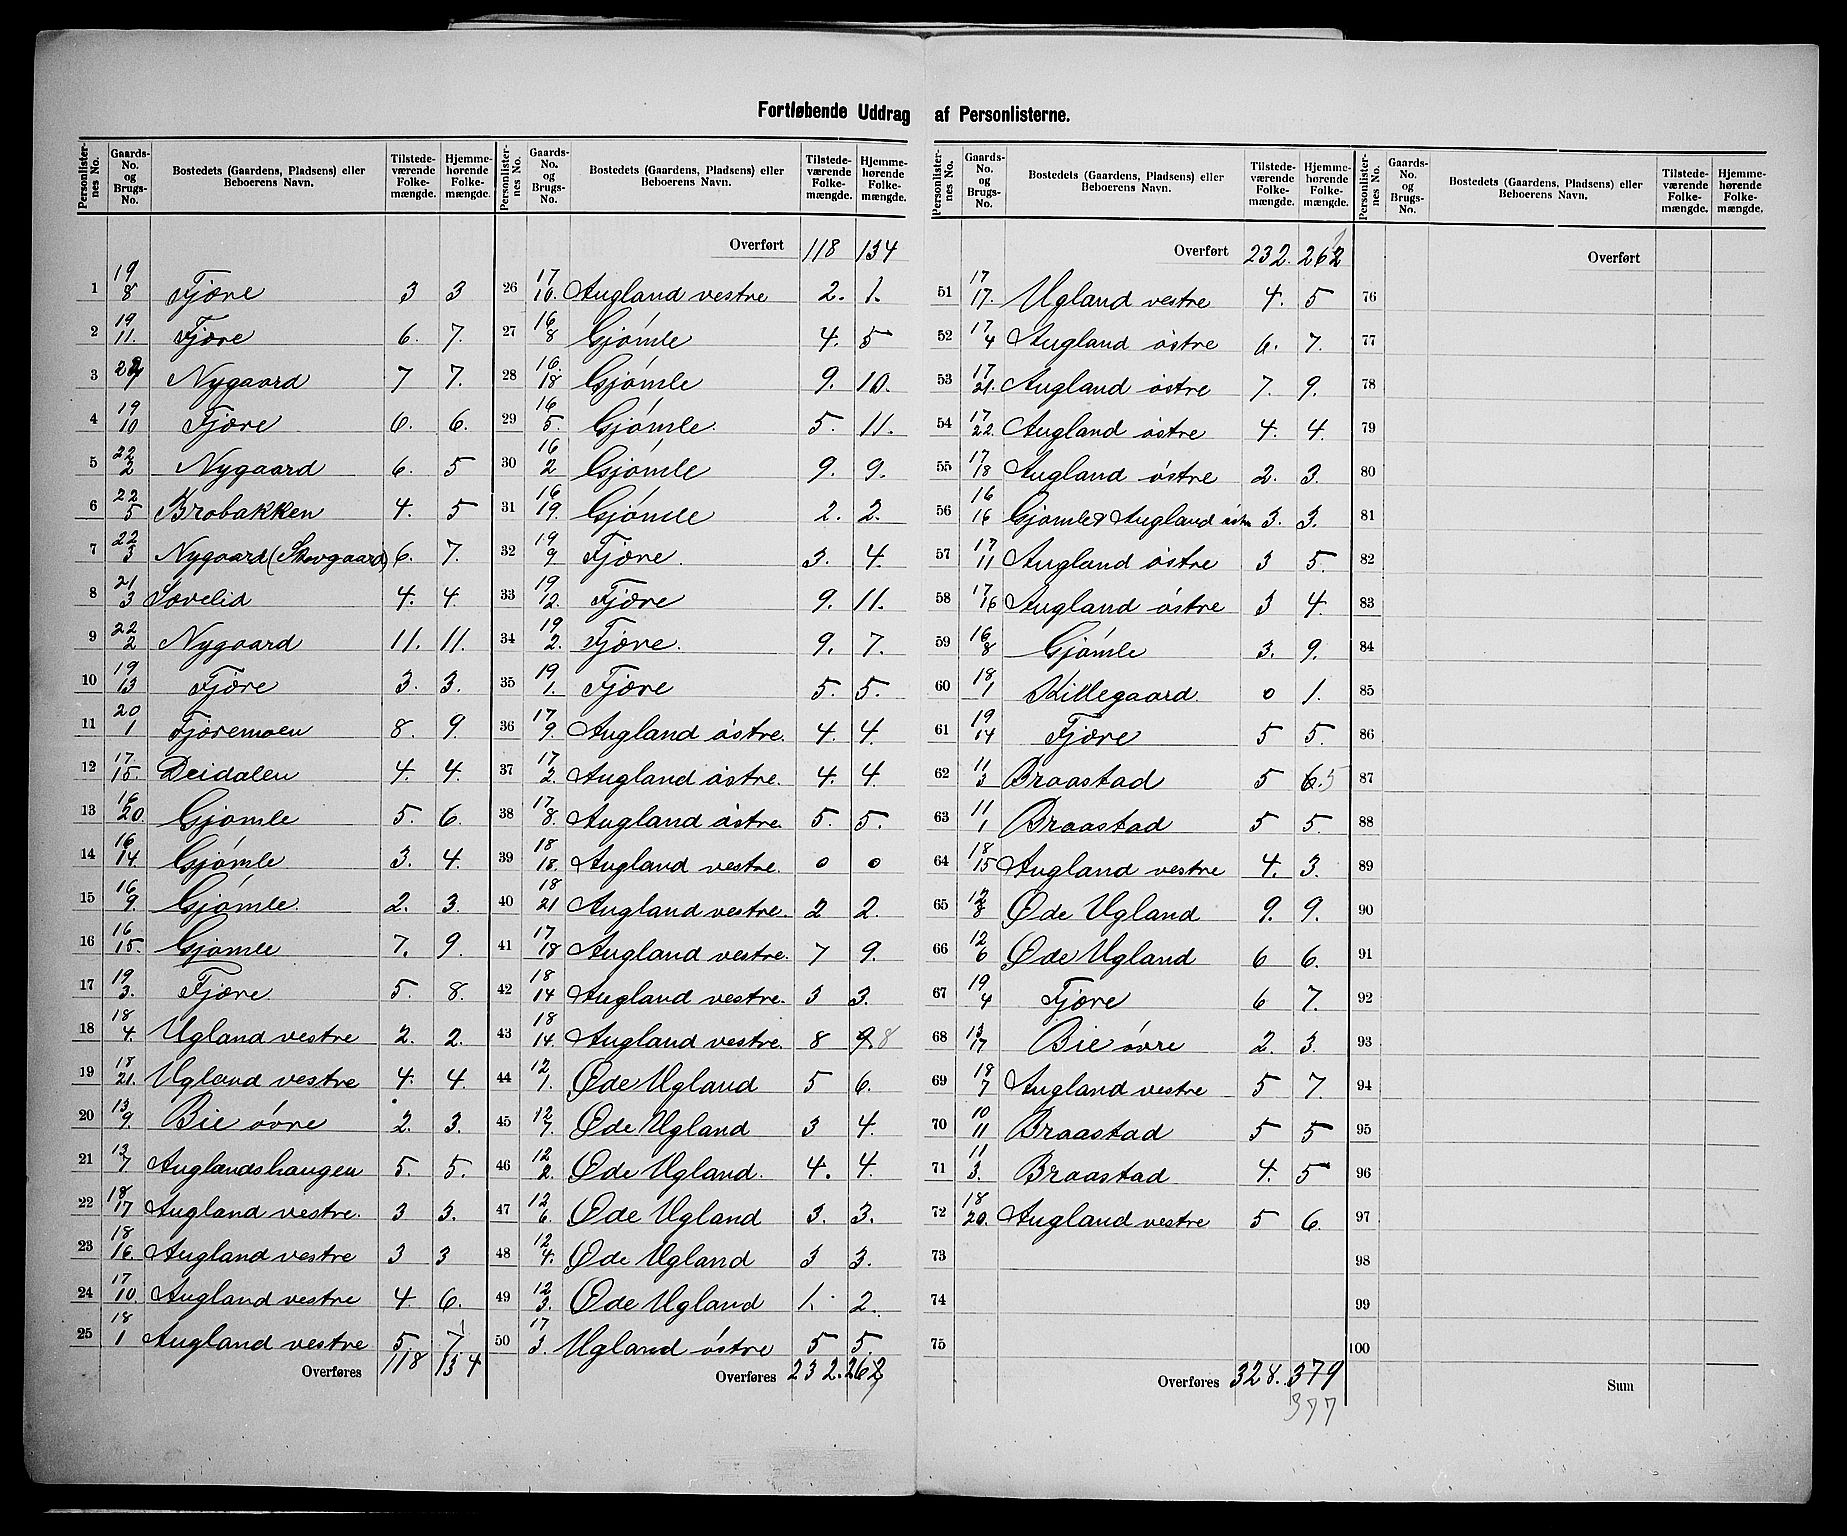 Fortløbende Uddrag af Personlisterne.
Personlister-nes No. Gaards-No. og Brugs-No. Bostedets (Gaardens, Pladsens) eller Beboerens Navn. Tilstede-værende Folke-mængde. Hjemme-hørende Folke-mængde.
1 19/8 Fjære 3 3
2 19/11. Fjære 6. 7.
3 22/ Nygaard 7 7.
4 19/10 Fjære 6. 6.
5 22/2 Nygaard 6. 5
6 22/5 Brobakken 4. 5
7 22/3 Nygaard (Skovgaard) 6. 7.
8 21/3 Sovelid 4. 4.
9 22/2 Nygaard 11. 11.
10 19/13 Fjære 3. 3.
11 20/1 Fjæremoen 8. 9.
12 17/15. Deidalen 4. 4.
13 16/20. Gjømle 5. 6.
14 16/14. Gjømle 3. 4.
15 16/9. Gjømle. 2. 3.
16 16/15. Gjømle 7. 9.
17 19/3. Fjære. 5. 8.
18 18/4. Ugland vestre 2. 2.
19 18/21. Ugland vestre 4. 4.
20 13/9. Bie øvre 2. 3.
21 13/7 Auglandshaugen 5. 5.
22 18/17 Augland vestre. 3 3.
23 18/16. Augland vestre 3 3
24 17/10. Augland vestre 4. 6.
25 18/1 Augland vestre 5. 7
Overføres 118 134
Personlister-nes No. Gaards-No. og Brugs-No. Bostedets (Gaardens, Pladsens) eller Beboerens Navn. Tilstede-værende Folke-mængde. Hjemme-hørende Folke-mængde.
Overført 118 134
26 17/10. Augland vestre 2. 1.
27 16/8 Gjømle 4. 5
28 16./18 Gjømle 9. 10.
29 16/5. Gjømle. 5. 11.
30 16/2 Gjømle 9. 9.
31 16/19. Gjømle 2. 2.
32 19/9 Fjære. 3. 4.
33 19/12. Fjære 9. 11.
34 19/2. Fjære. 9. 7.
35 19/1. Fjære 5. 5.
36 17/9. Augland østre. 4. 4.
37 17/2. Augland østre. 4. 4
38 17/8. Augland østre. 5. 5.
39 18/18. Augland vestre. 0 0
40 18/21 Augland vestre. 2 2.
41 17/18 Augland vestre. 7 9.
42 18/14 Augland vestre. 3 3.
43 18/14. Augland vestre. 8 9. 8
44 12/1. Øde Ugland 5 6.
45 12/7. Øde Ugland 3 4.
46 12/2. Øde Ugland. 4. 4.
47 12/6. Øde Ugland 3. 3.
48 12/4. Øde Ugland 3 3.
49 12/3. Øde Ugland 1. 2.
50 17/3. Ugland østre 5 5.
Overføres 232. 262
Personlister-nes No. Gaards-No. og Brugs-No. Bostedets (Gaardens, Pladsens) eller Beboerens Navn. Tilstede-værende Folke-mængde. Hjemme-hørende Folke-mængde.
Overført 232. 262
51 17/17. Ugland vestre 4. 5
52 17/4 Augland østre 6. 7.
53 17/21. Augland østre 7. 9.
54 17/22. Augland østre 4. 4.
55 17/18 Augland østre 2. 3.
56 16/16 Gjømle & Augland østre 3. 3.
57 17/11 Augland østre 3 5.
58 17/16 Augland østre 3 4.
59 16/8 Gjømle 3. 9.
60 18/1 Killegaard. 0 1.
61 19/14 Fjære 5 5.
62 11/3 Braastad 5 6. 5
63 11/1 Braastad 5 5.
64 18/15 Augland vestre 4. 3.
65 12/8 Øde Ugland 9. 9.
66 12/6 Øde Ugland 6 6.
67 19/4 Fjære 6 7.
68 13/17 Bie øvre 2. 3.
69 18/7 Augland vestre 5 7.
70 10/11 Braastad 5 5
71 11/3. Braastad 4. 5
72 18/20. Augland vestre 5 6.
73
74
75
Overføres 328. 379
377
Personlister-nes No. Gaards-No. og Brugs-No. Bostedets (Gaardens, Pladsens) eller Beboerens Navn. Tilstede-værende Folke-mængde. Hjemme-hørende Folke-mængde.
Overført
76
77
78
79
80
81
82
83
84
85
86
87
88
89
90
91
92
93
94
95
96
97
98
99
100
Sum